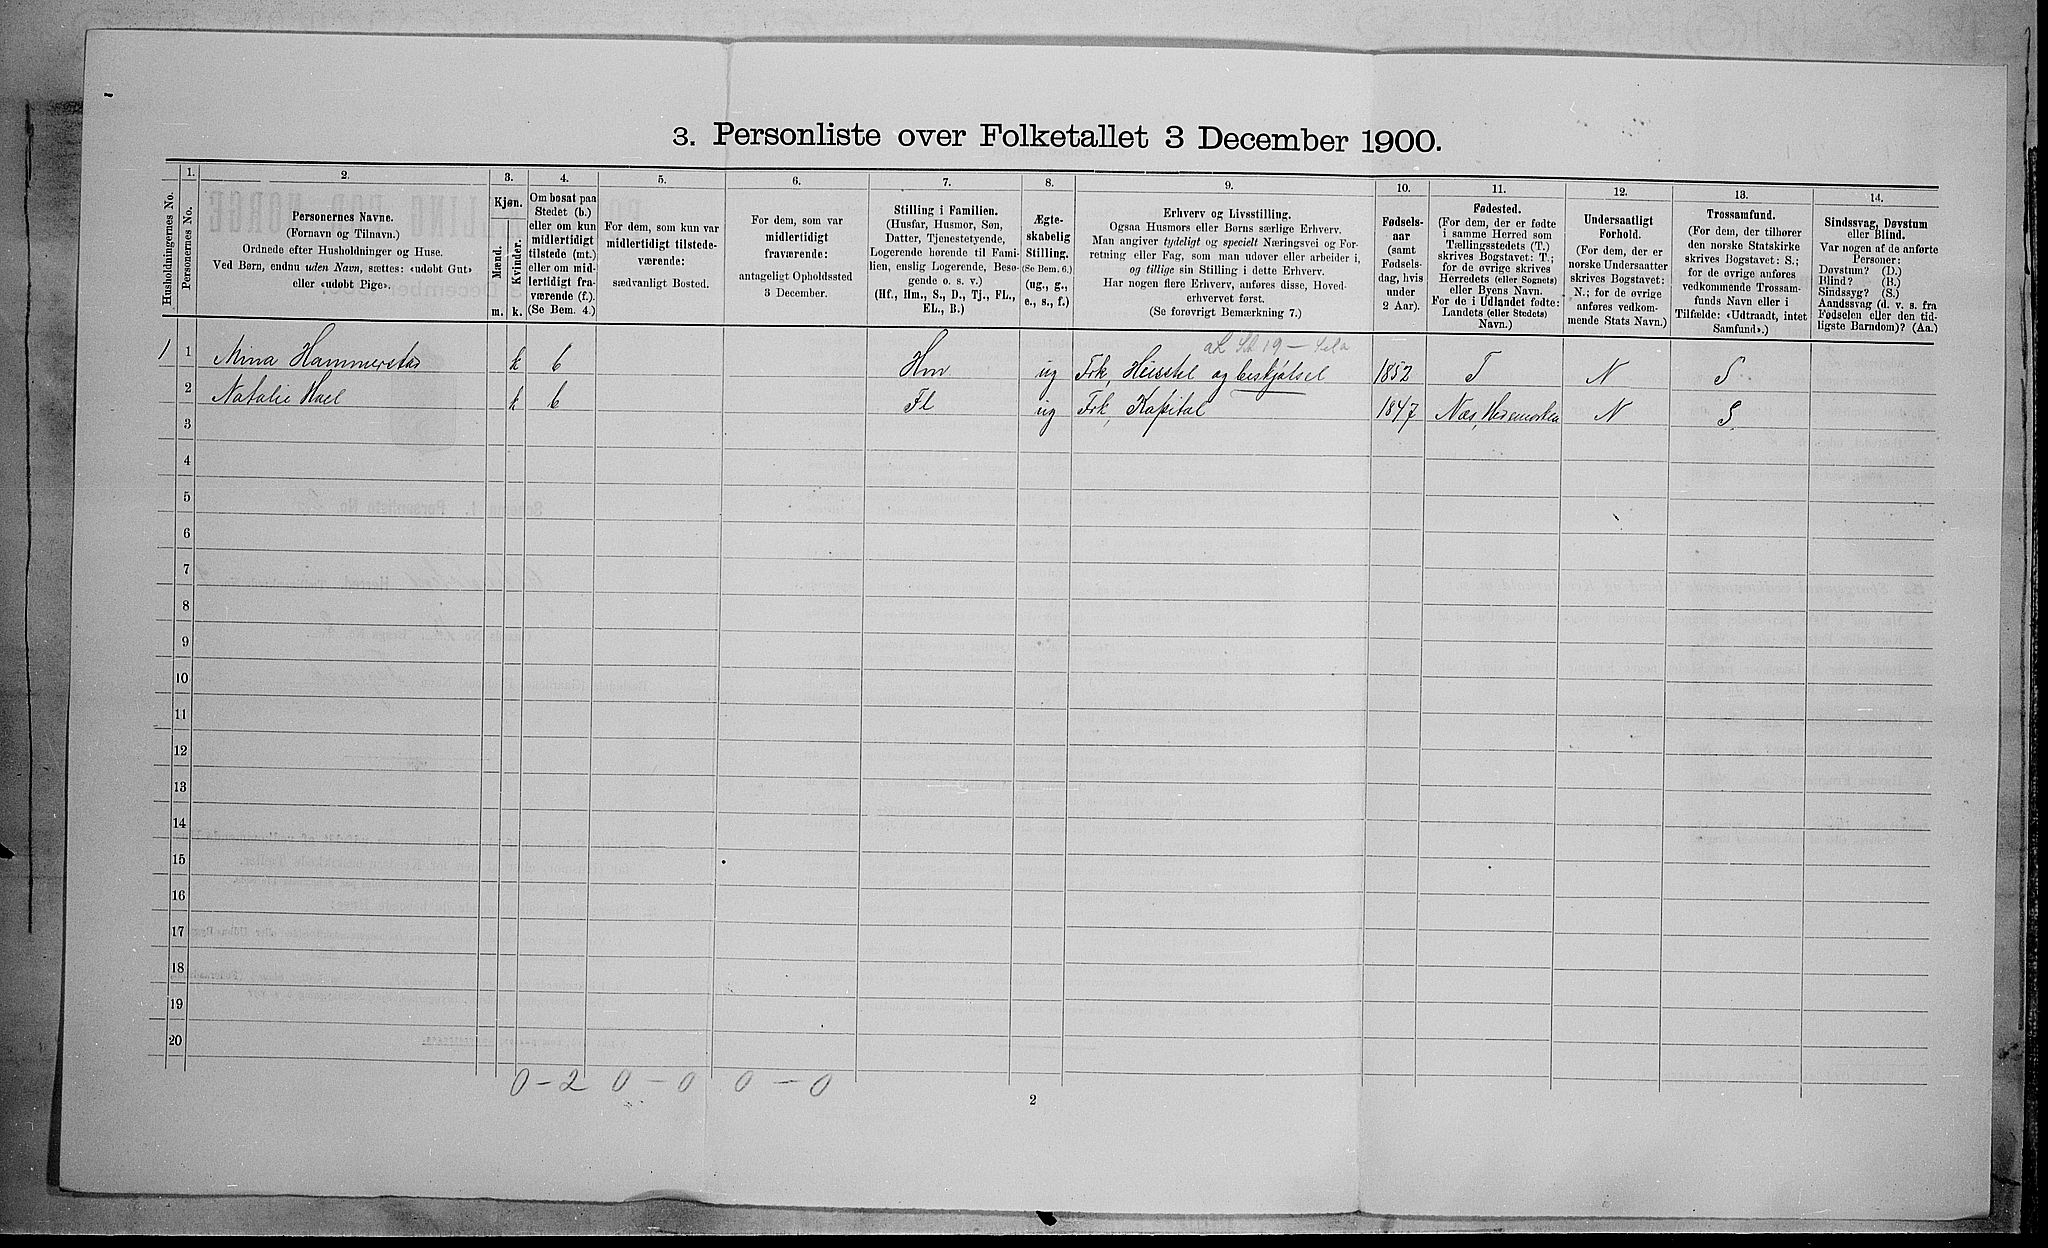 3. Personliste over Folketallet 3 December 1900.
Husholdningernes No.
1.
Personernes No.
2.
Personernes Navne.
(Fornavn og Tilnavn.)
Ordnede efter Husholdninger og Huse.
Ved Børn, endnu uden Navn, sættes: «udøbt Gut»
eller «udøbt Pige».
3.
Kjøn.
Mænd.
Kvinder.
m. k.
4.
Om bosat paa
Stedet (b.)
eller om kun
midlertidigt
tilstede (mt.)
eller om mid-
lertidigt fra-
værende (f.).
(Se Bem. 4.)
5.
For dem, som kun var
midlertidigt tilstede-
værende:
sædvanligt Bosted.
6.
For dem, som var
midlertidigt
fraværende:
antageligt Opholdssted
3 December.
7.
Stilling i Familien.
(Husfar, Husmor, Søn,
Datter, Tjenestetyende,
Logerende hørende til Fami-
lien, enslig Logerende, Besø-
gende o. s. v.)
(Hf., Hm., S., D., Tj., FL.,
EL., B.)
8.
Ægte-
skabelig
Stilling.
(Se Bem. 6.)
(ug., g.,
e., s., f.)
9.
Erhverv og Livsstilling.
Ogsaa Husmors eller Børns særlige Erhverv.
Man angiver tydeligt og specielt Næringsvei og For-
retning eller Fag, som man udøver eller arbeider i,
og tillige sin Stilling i dette Erhverv.
Har nogen flere Erhverv, anføres disse, Hoved-
erhvervet først.
(Se forøvrigt Bemærkning 7.)
10.
Fødsels-
aar
(samt
Fødsels-
dag, hvis
under
2 Aar).
11.
Fødested.
(For dem, der er fødte
i samme Herred som
Tællingsstedets (T.)
skrives Bogstavet: T.;
for de øvrige skrives
Herredets (eller Sognets)
eller Byens Navn.
For de i Udlandet fødte:
Landets (eller Stedets)
Navn.)
12.
Undersaatligt
Forhold.
(For dem, der er
norske Undersaatter
skrives Bogstavet:
N.; for de øvrige
anføres vedkom-
mende Stats Navn.)
13.
Trossamfund.
(For dem, der tilhører
den norske Statskirke
skrives Bogstavet: S.;
for de øvrige anføres
vedkommende Trossam-
funds Navn eller i
Tilfælde: «Udtraadt, intet
Samfund».)
14.
Sindssvag, Døvstum
eller Blind.
Var nogen af de anførte
Personer:
Døvstum? (D.)
Blind? (B.)
Sindssyg? (S.)
Aandssvag (d. v. s. fra
Fødselen eller den tid-
ligste Barndom)? (Aa.)
1 1 Mina Hammerstad k b Hm ug Frk, og beskjæftsel 1852 T N S
2 Natalie Hoel k b Fl ug Frk, Kapital 1847 Næs, Hedemarken N S.
3
4
5
6
7
8
9
10
11
12
13
14
15
16
17
18
19
20
0 – 2 0 – 0 0 – 0
2